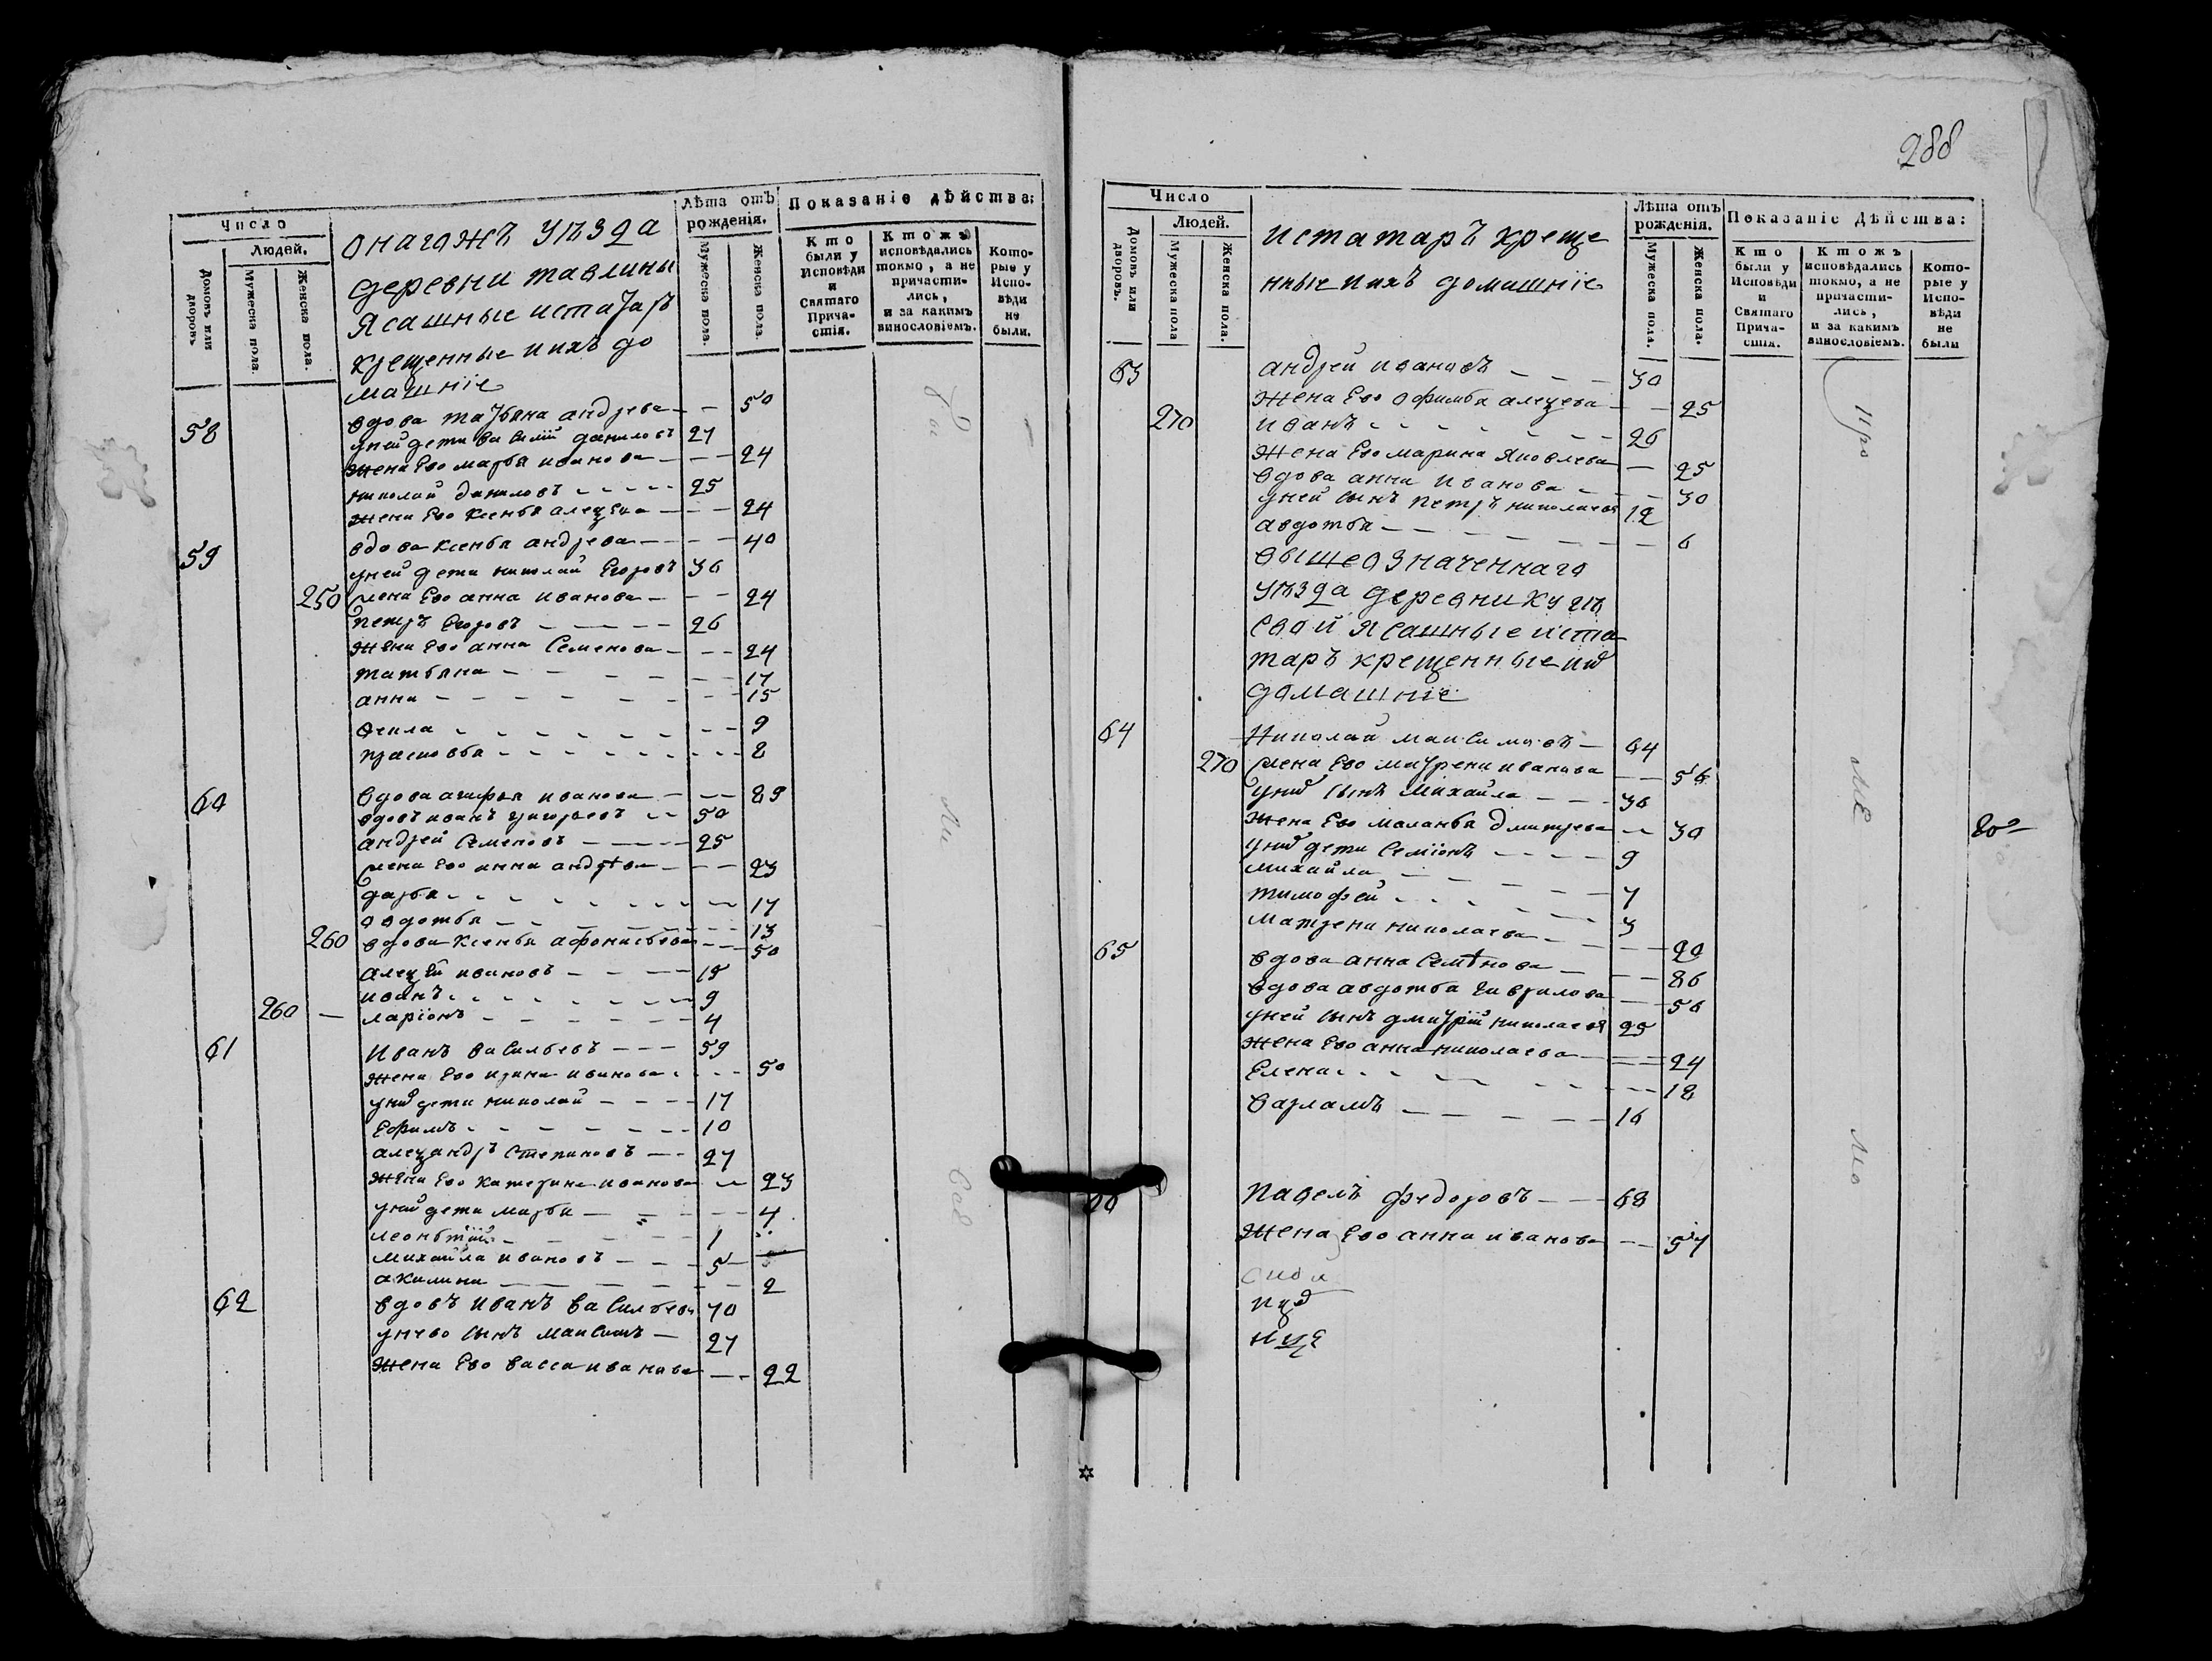 288
Число
Людей.
Домовъ или дворовъ
Мужеска пола.
Женска пола.
онагожъ уѣзда
деревни тавлины
Ясашные истатаръ
крещенные иихъ до
машніе
Лѣта отъ рожденія.
Мужеска пола.
Женска пола.
Показаніе дѣйства:
Кто были у Исповѣди и Святаго Прича-стія.
Ктожъ исповѣдались токмо, а не причасти-лись, и за какимъ винословіемъ.
Кото-рые у Испо-вѣди не были.
58 вдова татьяна андрева — — 50
уней дети василій даниловъ 27
жена Ево марья иванова — — — 24
николай даниловъ - - - - - 25
жена Ево Ксенья алецева — — — 24
59 вдова ксенья андрева — — — 40
уней дети николай Егоровъ 36
250 жена Ево анна иванова — — — 24
петръ Егоровъ — — — — 26
жена Ево анна Семенова — — — 24
татьяна — — — — — — 17
анна — — — — — — — 15
- - - - - - - - 9
прасковья - - - - - - - - 8
60 вдова агафья иванова — — — 89
вдовъ иванъ григорьевъ — — 50
андрей Семеновъ — — — — 25
жена Ево анна андрева — — — 23
дарья - - - - - - - — 17
авдотья — — — — - - - - 13
260 вдова Ксенья афонасьева — — — 50
алецей ивановъ — — — — 15
иванъ - - - - - - — 9
260 — ларіонъ — — — — — — 4
61 Иванъ васильевъ — — — 59
жена Ево ирина иванова - - - - 50
унид дети николай — — — — 17
Ефимъ - - - - - - - 10
алецандръ Степановъ — — 27
жена Ево катерина иванова — 23
унид дети марья — — — — — 4
леонтій — — — — — 1
михайла ивановъ — — — 5
акилина — — — — — — — 2
62 вдовъ иванъ васильевъ 70
унево сынъ максимъ — 27
жена Ево васса иванова — — 22
Число
Людей.
Домовъ или дворовъ.
Мужеска пола
Женска пола.
истатаръ креще
нные иихъ домашніе
Лѣта отъ рожденія.
Мужеска пола.
Женска пола.
Показаніе Дѣйства:
Кто были у Исповѣди и Святаго Прича-стія.
Ктожъ исповѣдались токмо, а не причасти-лись, и за какимъ винословіемъ.
Кото-рые у Испо-вѣди не были
63 андрей ивановъ — — — 30
жена Ево офимья алецева — — 25
270 иванъ - - - - - - — — 26
жена Ево марина Яковлева — 25
вдова анна иванова — — — 30
уней сынъ петръ николаевъ 12
авдотья — — — — — — — 6
вышеозначеннаго
уѣзда деревни
Ясашные иста
таръ крещенные иид
домашніе
64 Николай максимовъ — 64
270 жена Ево матрена иванова — — 56
унид сынъ михайла — — — 36
жена Ево маланья дмитрева — 30
унид дети Семіонъ — — — — 9
михайла — — — — — — 7
тимофей - - - - - — — — 3
матрена николаева — — — — 20
65 вдова анна Семѣнова — — — 86
вдова авдотья гаврилова — — 56
уней сынъ дмитрій николаевъ 25
жена Ево анна николаева — — — 24
Елена - - - — — — — — 18
варламъ — — — — — 16
66 павелъ федоровъ — — — 68
жена Ево анна иванова — — 57